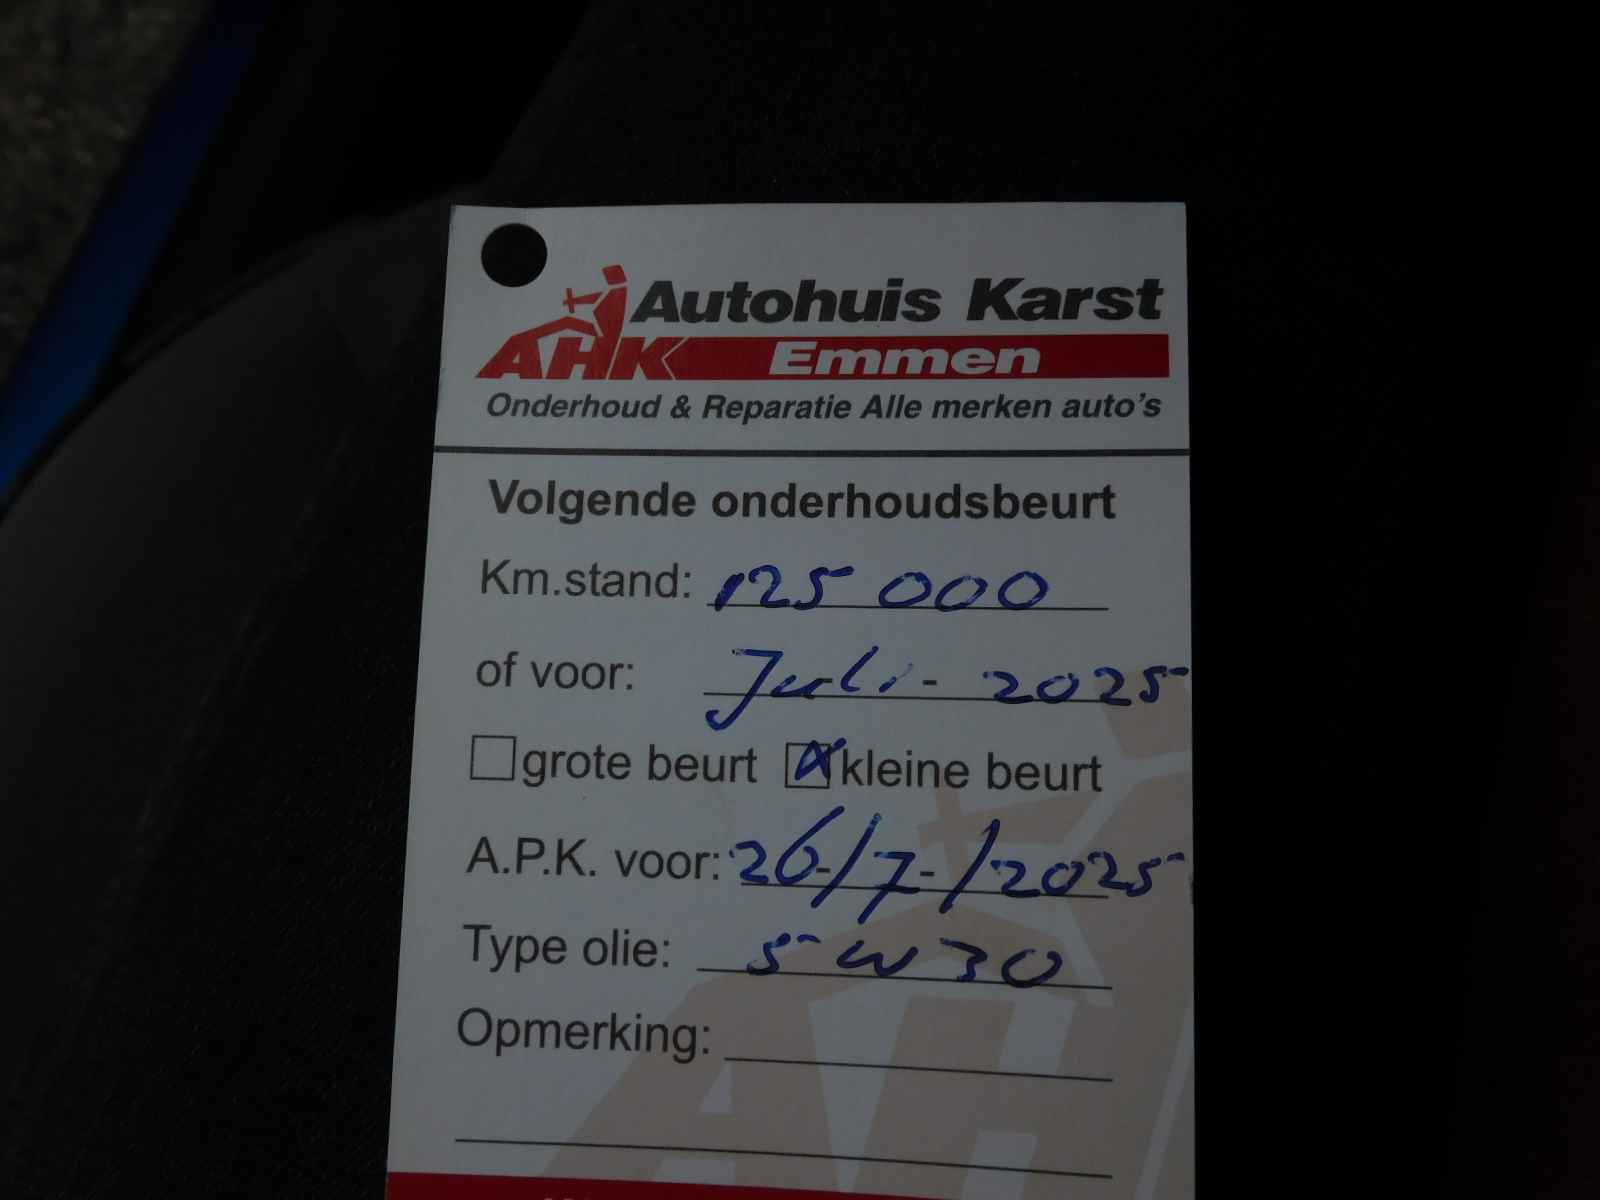 Autohuis Karst
AHK Emmen
Onderhoud & Reparatie Alle merken auto's
Volgende onderhoudsbeurt
Km.stand: 125 000
of voor: Juli - 2025
grote beurt kleine beurt
A.P.K. voor: 26-/7-/2025
Type olie: 5 W 30
Opmerking: